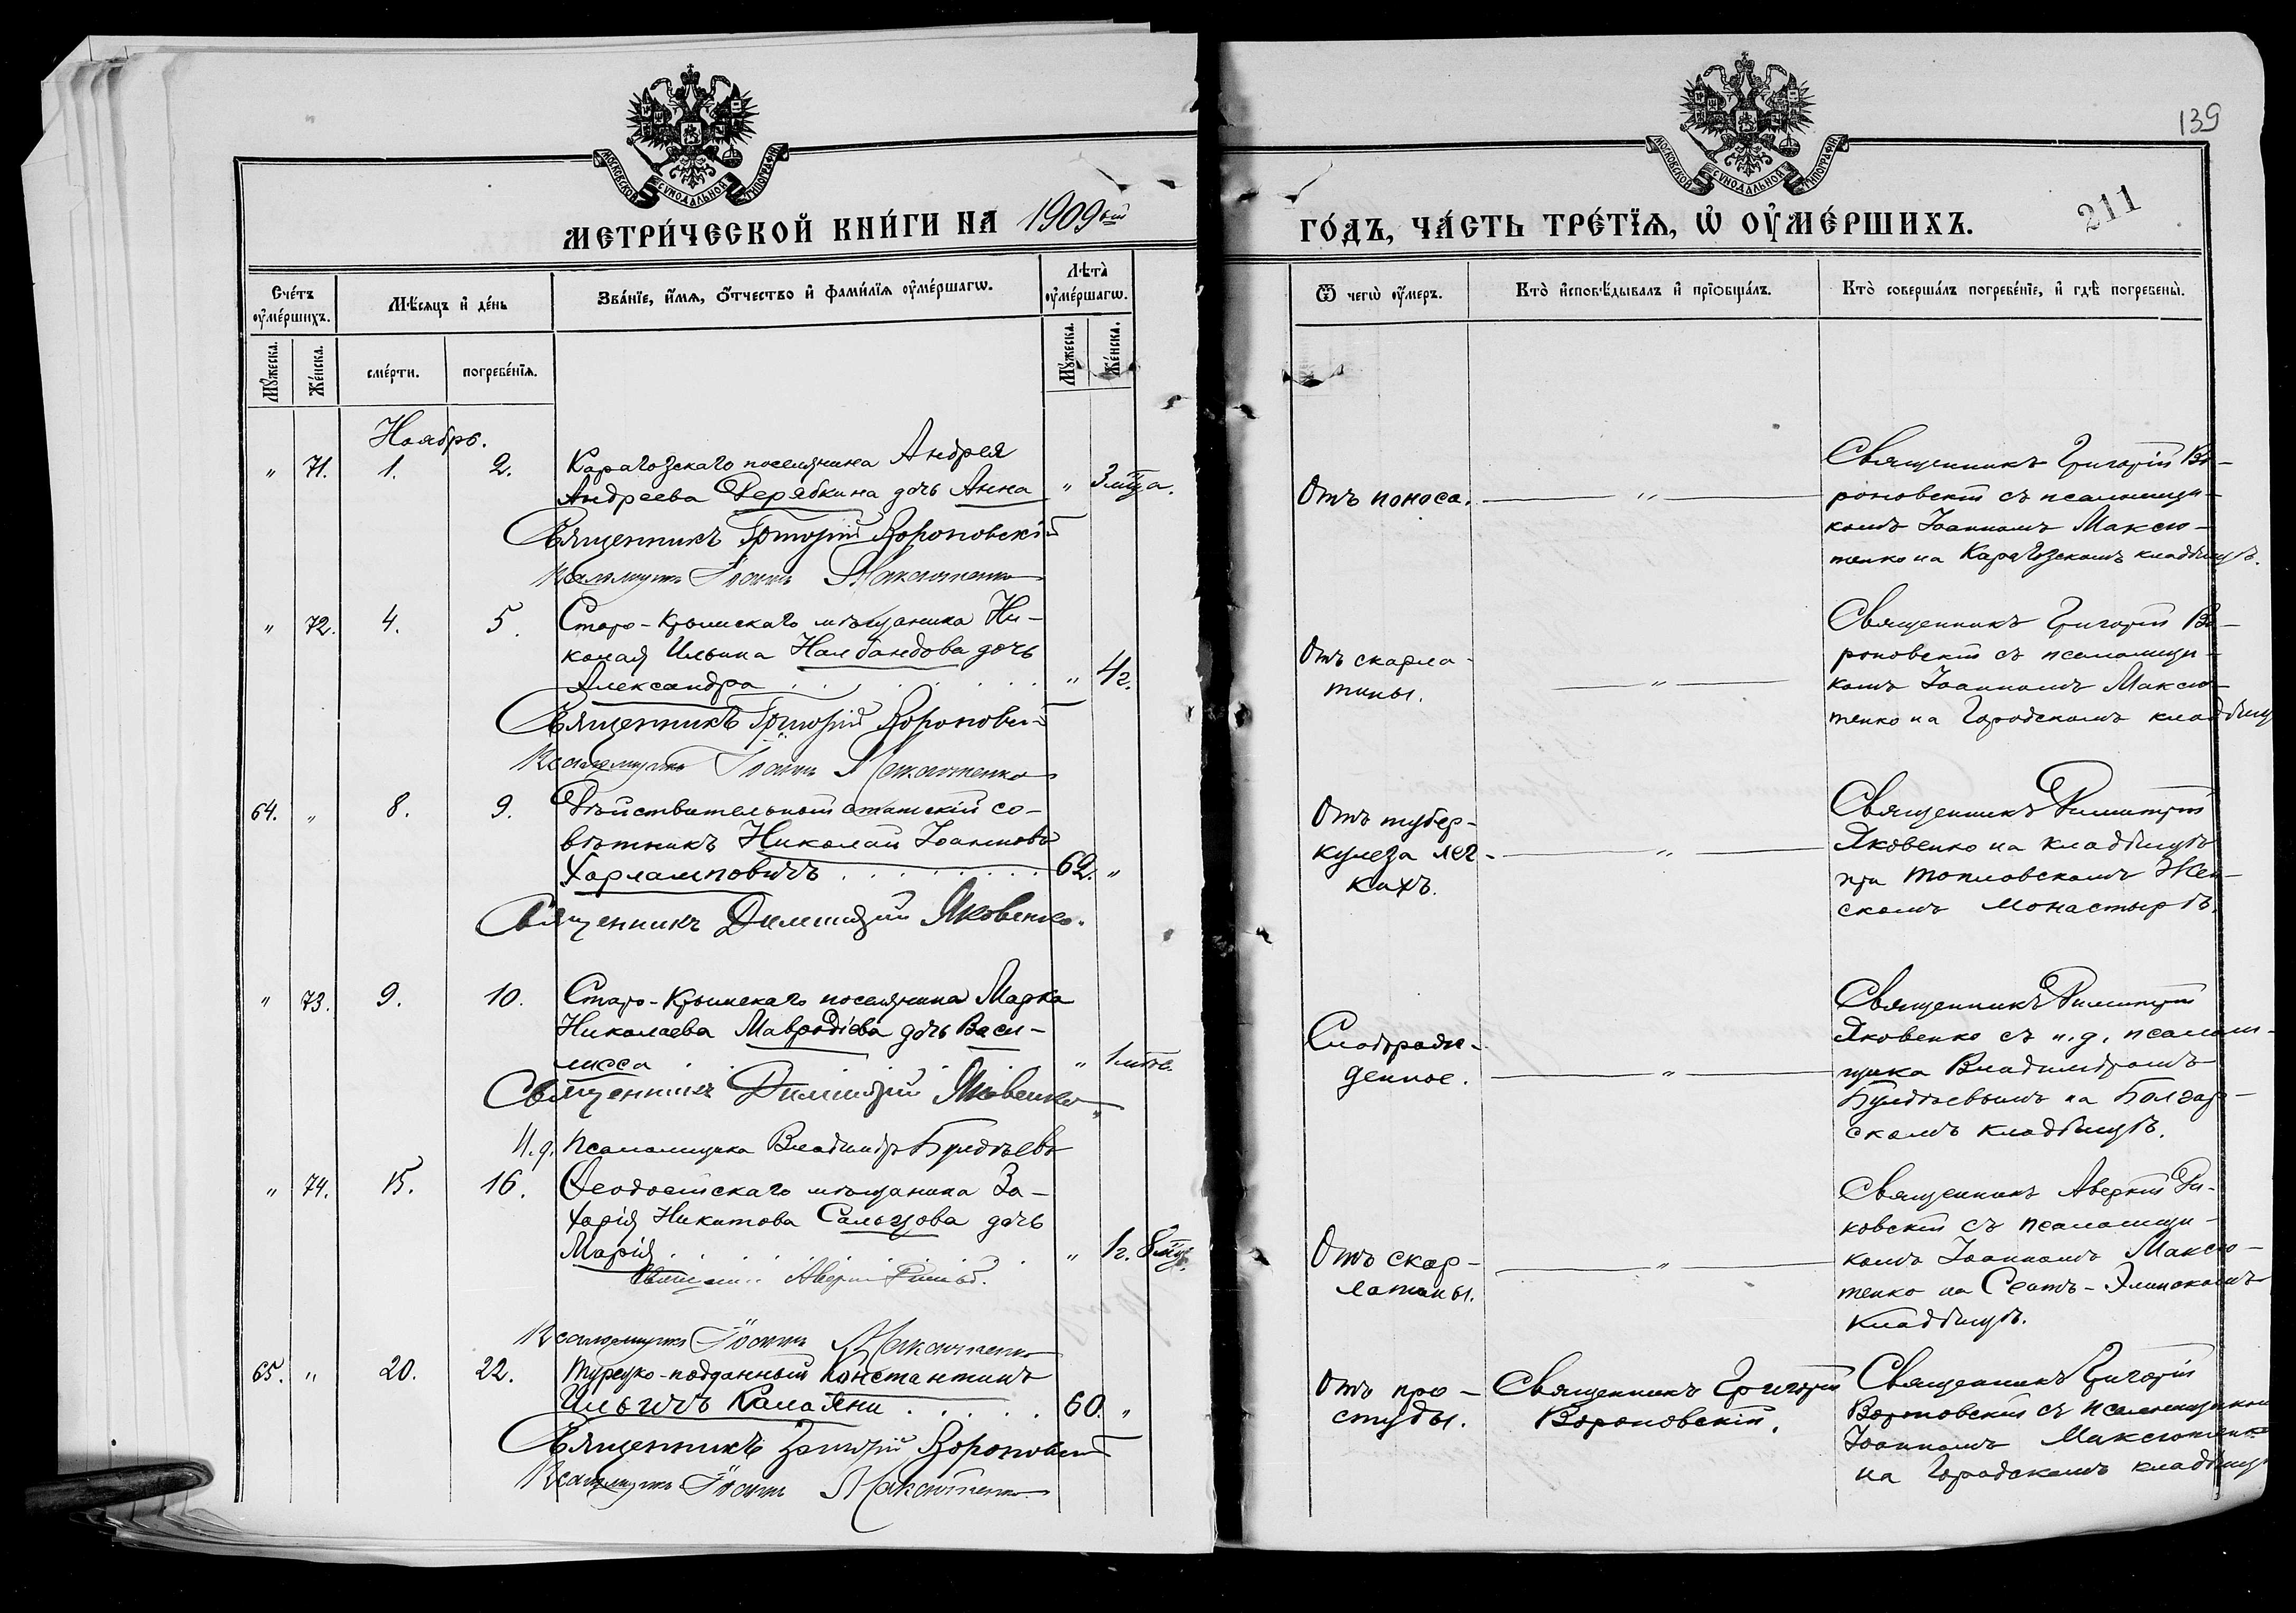 139
211
МОСКОВСКОЙ СУНОДАЛЬНОЙ ТИПОГРАФІИ
МОСКОВСКОЙ СУНОДАЛЬНОЙ ТИПОГРАФІИ
МЕТРИ́ЧЕСКОЙ КНИ́ГИ НА 1909ый
ГО́ДЪ, ЧА́СТЬ ТРЕ́ТЇѦ, Ѡ҆ ОУ҆МЕ́РШИХЪ.
Сче́тъ оу҆ме́ршихъ.
Мѣ́сяцъ и҆ де́нь
Зва́нїе, и҆́мѧ, ѻ҆́тчество и҆ фами́лїѧ оу҆ме́ршагѡ.
Лѣта̀ оу҆ме́ршагѡ.
Мꙋ́жеска.
Же́нска.
сме́рти.
погребе́нїѧ.
Мꙋ́жеска.
Же́нска.
Ѿ чегѡ̀ оу҆́меръ.
Кто̀ и҆сповѣ́дывалъ и҆ прїѡбща́лъ.
Кто̀ соверша́лъ погребе́нїе, и҆ гдѣ̀ погребены̀.
Ноябрь.
" 71. 1. 2. Карагозскаго поселянина Андрея
Андреева Дерябкина дочь Анна " 3 мѣца.
Священникъ Григорій Вороновскій
Псаломщикъ Іоаннъ Максютенко
Отъ поноса. "
Священникъ Григорій Во-
роновскій съ псаломщи-
комъ Іоанномъ Максю-
тенко на Карагозскомъ кладбищѣ.
" 72. 4. 5. Старо-Крымскаго мѣщанина Ни-
колая Ильина Налбандова дочь
Александра " 4 г.
Священникъ Григорій Вороновскій
Псаломщикъ Іоаннъ Максютенко
Отъ скарла-
тины. "
Священникъ Григорій Во-
роновскій съ псаломщи-
комъ Іоанномъ Максю-
тенко на Городскомъ кладбищ
64. " 8. 9. Дѣйствительный статскій со-
вѣтникъ Николай Іоанновъ
Харламповичъ 62. "
Священникъ Димитрій Яковенко.
Отъ тубер-
кулеза лег-
кихъ. "
Священникъ Димитрій
Яковенко на кладбищѣ
при Топловскомъ Жен-
скомъ монастырѣ.
" 73. 9. 10. Старо-Крымскаго поселянина Марка
Николаева Мавродіева дочь Васи-
лисса " 1 мѣс.
Священникъ Димитрій Яковенко
И. д. псаломщика Владиміръ
Слаборож-
денное. "
Священникъ Димитрій
Яковенко съ и. д. псалом-
щика Владиміромъ
на Болгар-
скомъ кладбищѣ.
" 74. 15. 16. Ѳеодосійскаго мѣщанина За-
харія Никитова Сальцова дочь
Марія " 1 г. 8 мѣц.
Псаломщикъ Іоаннъ Максютенко
Отъ скар-
латины. "
Священникъ Аверкій
съ псаломщи-
комъ Іоанномъ Максю-
тенко на Сеитъ-Элинскомъ
кладбищѣ.
65. " 20. 22. Турецко-подданный Константинъ
Ильичъ Калаяни 60. "
Священникъ Григорій Вороновскій
Псаломщикъ Іоаннъ Максютенко
Отъ про-
студы.
Священникъ Григорій
Вороновскій.
Священникъ Григорій
Вороновскій съ псаломщикомъ
Іоанномъ Максютенко
на Городскомъ кладбищ